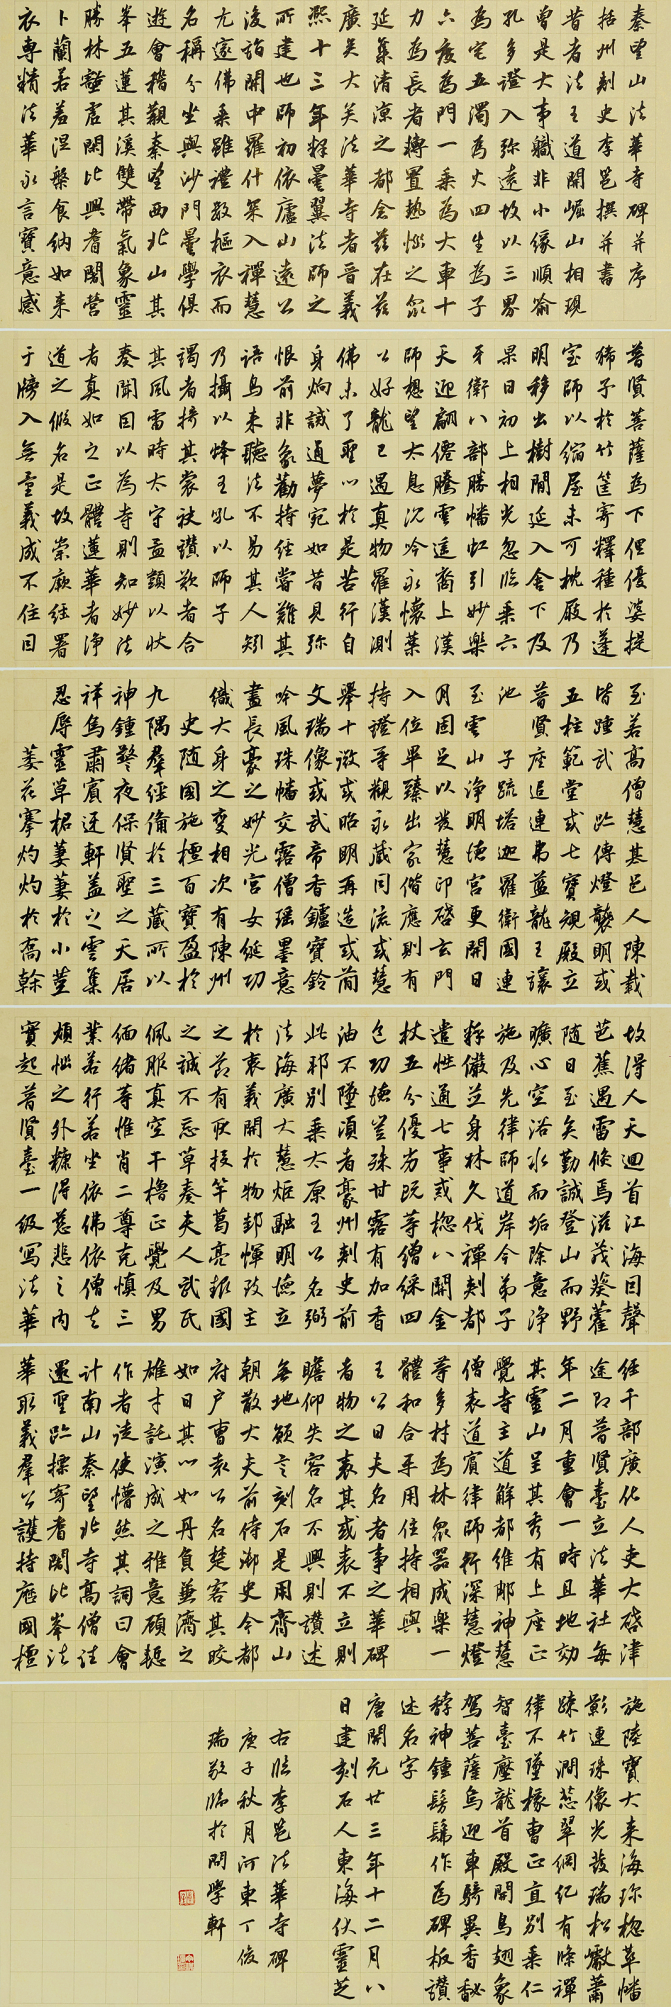 秦望山法華寺碑并序
括州刺史李邕撰并書
昔者法王道開崛山相現
曾是大事職非小緣順喻
孔多證入弥遠故以三界
為宅五濁為火四生為子
六度為門一乘為大車十
力為長者轉置熱惱之衆
延集清涼之都會茲在茲
廣矣大矣法華寺者晉義
熙十三年釋曇翼法師之
所建也師初依廬山遠公
後詣關中羅什架入禪慧
尤邃佛乘雖禮敬樞衣而
名稱分坐與沙門曇學俱
遊會稽觀秦望西北山其
峯五蓮其溪雙帶氣象靈
勝林壑虛閑比興耆闍營
卜蘭若若涅槃食納如来
衣專精法華永言寶意感
普賢菩薩為下俚優婆提
稀子於竹筐寄釋種於蓬
室師以縮屋未可枕股乃
明移出樹間延入舍下及
杲日初上相光忽臨乘六
牙衛八部勝幡虹引妙樂
天迎翩僊騰雲遙裔上漢
師想望太息沉吟永懷葉
公好龍已遇真物羅漢測
佛未了聖心於是苦行自
身炯誠通夢宛如昔見弥
恨前非象勸持經嘗難其
語鳥未聽法不易其人矧
乃攝以蜂王吼以師子
謁者摛其裳袂讚歎者合
其風雷時太守孟顗以狀
奏聞因以為寺則知妙法
者真如之正體蓮華者淨
道之假名是故崇厥經署
于牓入無量義成不住因
至若高僧慧基邑人陳載
皆踵武 跡傳燈襲明或
五柱範堂或七寶規殿立
普賢座追連弗藍龍王讓
池 子疏塔迦羅衛國連
至雲山淨明德宮更開日
月固足以發慧印啓玄門
入位畢臻出家偕應則有
持證等觀永藏同流或慧
舉十徵或昭明再造或簡
文瑞像或武帝香鑪寶鈴
吟風珠幡交露僧瑤墨意
畫長豪之妙光宮女綎功
織大身之變相次有陳州
史隨國施檀百寶盈於
九隅羣經備於三藏所以
神鍾警夜保賢聖之天居
祥鳥肅賓迓軒蓋之雲集
忍辱靈草裙萋萋於小荳
萎花搴灼灼於喬榦
故得人天迴首江海因聲
芭蕉遇雷倏焉滋茂葵藿
隨日至矣勤誠登山而野
曠心空浴水而垢除意淨
施及先律師道岸今弟子
釋儼並身林久伐禪刹都
遣性通七事或惚八開金
杖五分優劣既等僧綵四
色功德差殊甘露有加香
油不墜頃者豪州刺史前
此邪別乘太原王公名弼
法海廣大慧炬融明德立
於衷義開於物郅惲政主
之節有耿投竿葛亮報國
之誠不忌草奏夫人武氏
佩服真空干櫓正覺及男
緬緒等惟肖二尊克慎三
業若行若坐依佛依僧去
煩惱之外糠得慈悲之內
實起普賢臺一級寫法華
經千部廣化人吏大啓津
途即普賢臺立法華社每
年二月重會一時且地効
其靈山呈其秀有上座正
覺寺主道解都維那神慧
僧表道賓律師行深慧燈
等多材為林衆器成樂一
體和合手用住持相與
王公曰夫名者事之華碑
者物之表其或表不立則
瞻仰失容名不興則讚述
無地願言刻石是用齊山
朝散大夫前侍御史今都
府戶曹袁公名楚客其皎
如日其心如丹負兼濟之
雄才託演成之雅意顧慙
作者徒使懵然其詞曰會
計南山秦望北寺高僧往
還聖跡標寄者闍比峯法
華取義羣公護持庶國檀
施陸寶大来海珎惚草幡
影連珠像光發瑞松巘蕭
疎竹澗葱翠綱紀有條禪
律不墜椽曹正直別乘仁
智臺壓龍首殿開鳥翅象
駕菩薩烏迎車騎異香馝
馞神鍾髣髴作為碑板讚
述名字
唐開元廿三年十二月八
日建刻石人東海伏靈芝
右臨李邕法華寺碑
庚子秋月河東丁俊
瑞敬臨於問學軒